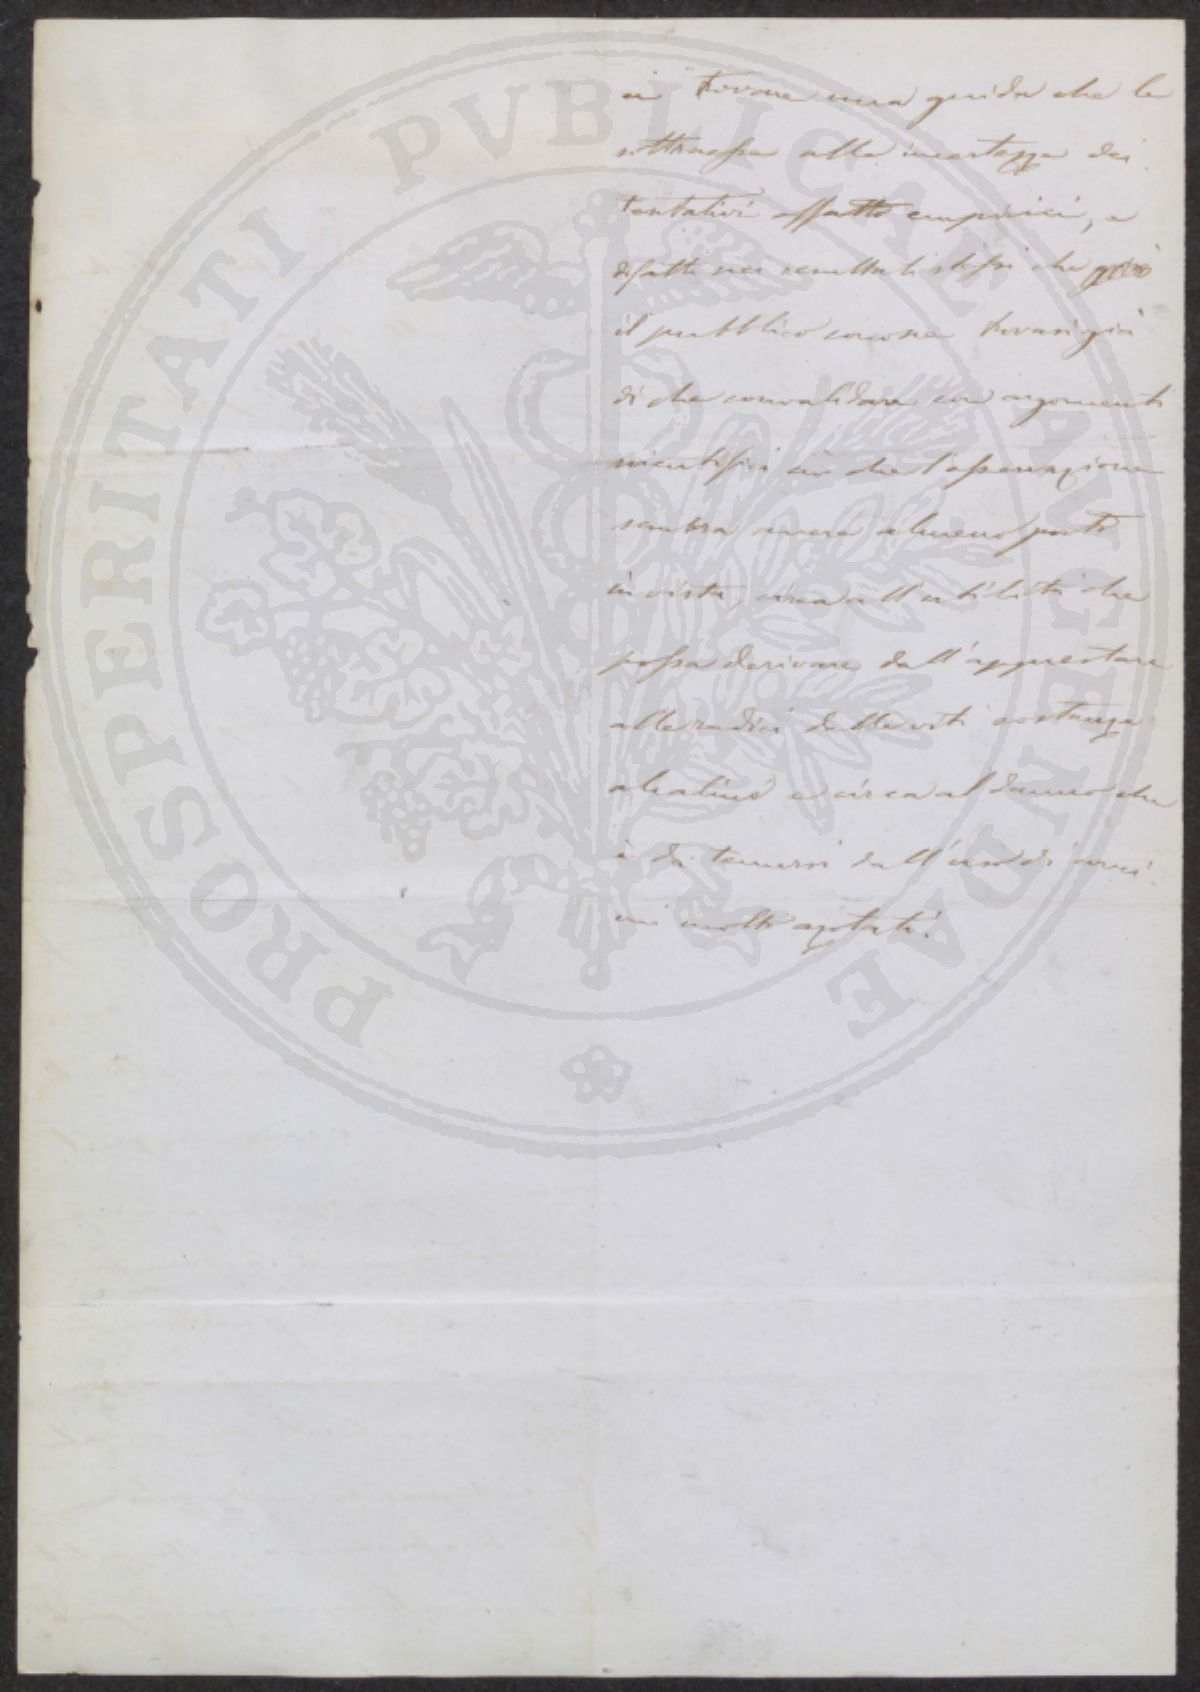 PROSPERITATI PVBLICAE AVGENDAE
a trovare una guida che le
sottraesse alle incertezze dei
tentativi affatto empirici, e
difatti nei resultati stessi che
il pubblico conosce trovasi già
di che convalidare con argomenti
scientifici ciò che l'osservazione
sembra avere almeno posto
in vista, circa all'utilità che
possa derivare dall'apprestare
alle radici delle viti sostanze
alcaline e circa al danno che
è da temersi dall'uso di conci
mi molto azotati.